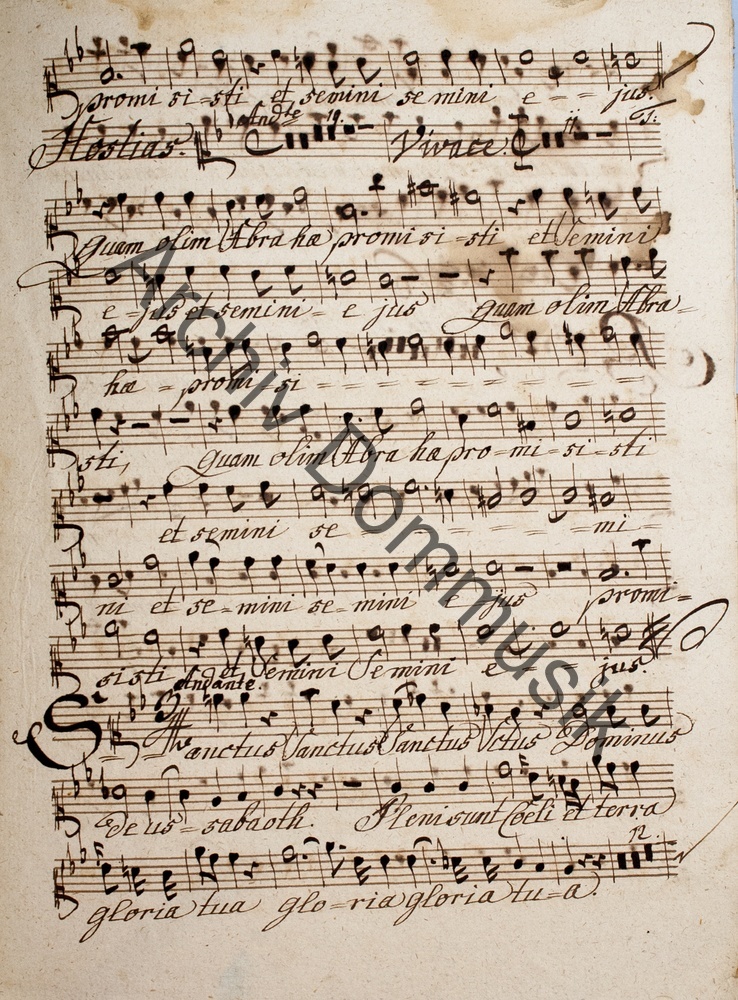 promi si = sti et semini se mini e - - jus.
Andte 19. 11. T:
Hostias. Vivace.
quam olim Abra hæ promi si = sti et Semini
e - jus et semini - e jus quam olim Abra =
hæ = promi = si = = = = = = =
sti, quam olim Abra hæ pro = mi = si = sti
et semini se - - - - - - mi =
ni et se = mini se = mini e jus promi =
si sti et Semini Semini e - - jus.
Andante.
Sanctus Sanctus Sanctus Sctus Dominus
De us = sabaoth. Pleni sunt Cœli et terra
12.
gloria tua glo = ria gloria tu = a.
Archiv Dommusik